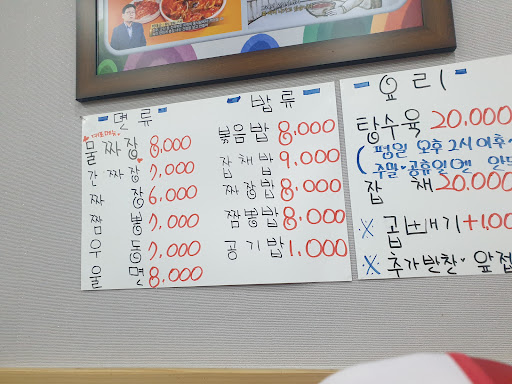 면류
물짜장 8,000
간짜장 7,000
짜장 6,000
짬뽕 7,000
우동 7,000
울면 8,000
밥류
볶음밥 8,000
잡채밥 9,000
짜장밥 8,000
짬뽕밥 8,000
공기밥 1,000
요리
탕수육 20,000
(평일 오후 2시 이후
주말·공휴일엔 안
잡채 20,000
※ 곱빼기 +1,00
※ 추가반찬· 앞접